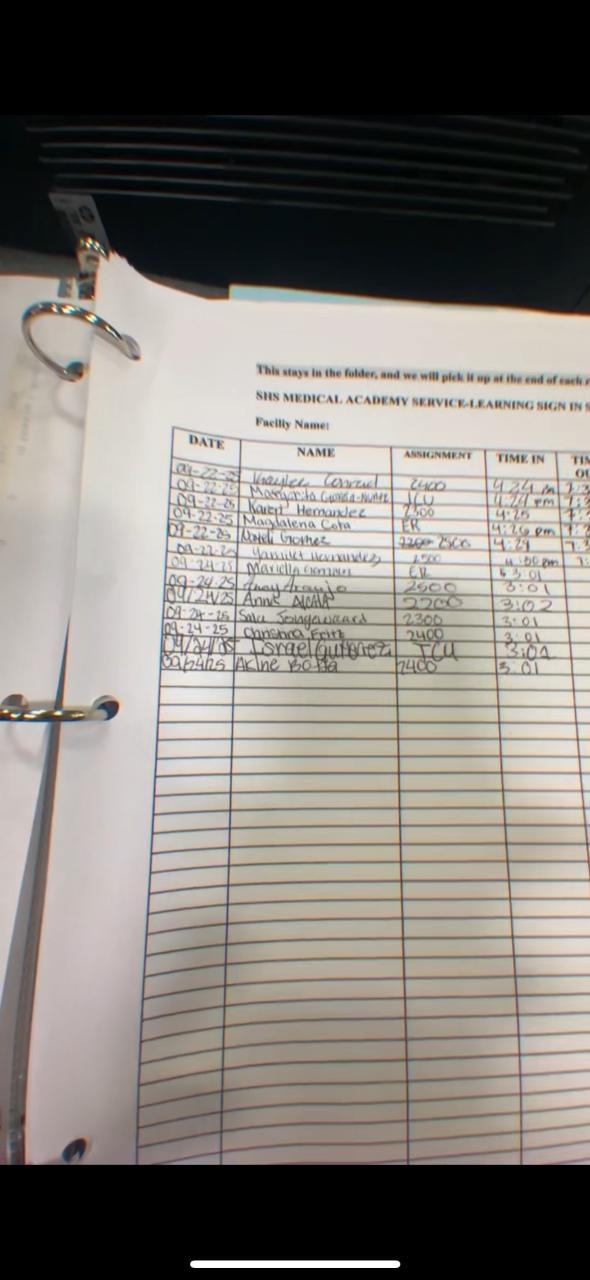 This stays in the folder, and we will pick it up at the end of each
SHS MEDICAL ACADEMY SERVICE-LEARNING SIGN IN S
Facility Name:
DATE NAME ASSIGNMENT TIME IN TIM
OU
09-22-25 Kaylee Conrad 2400 4:24 pm
09-22-25 Margarita ICU 4:24 pm
09-22-25 Karen Hernandez 2300 4:25
09-22-25 Magdalena Cota ER 4:26 pm
09-22-25 Natali Gomez 2500 4:29
09-22-25 Hernandez 2500 4:30 pm
09-24-25 Mariella ER 3:01
09-24-25 Araujo 2500 3:01
09/24/25 Anne Alcala 2200 3:02
09-24-25 Jongewaard 2300 3:01
09-24-25 Christina Fritz 2400 3:01
09/24/25 Israel Gutierrez ICU 3:02
09/24/25 2400 3:01